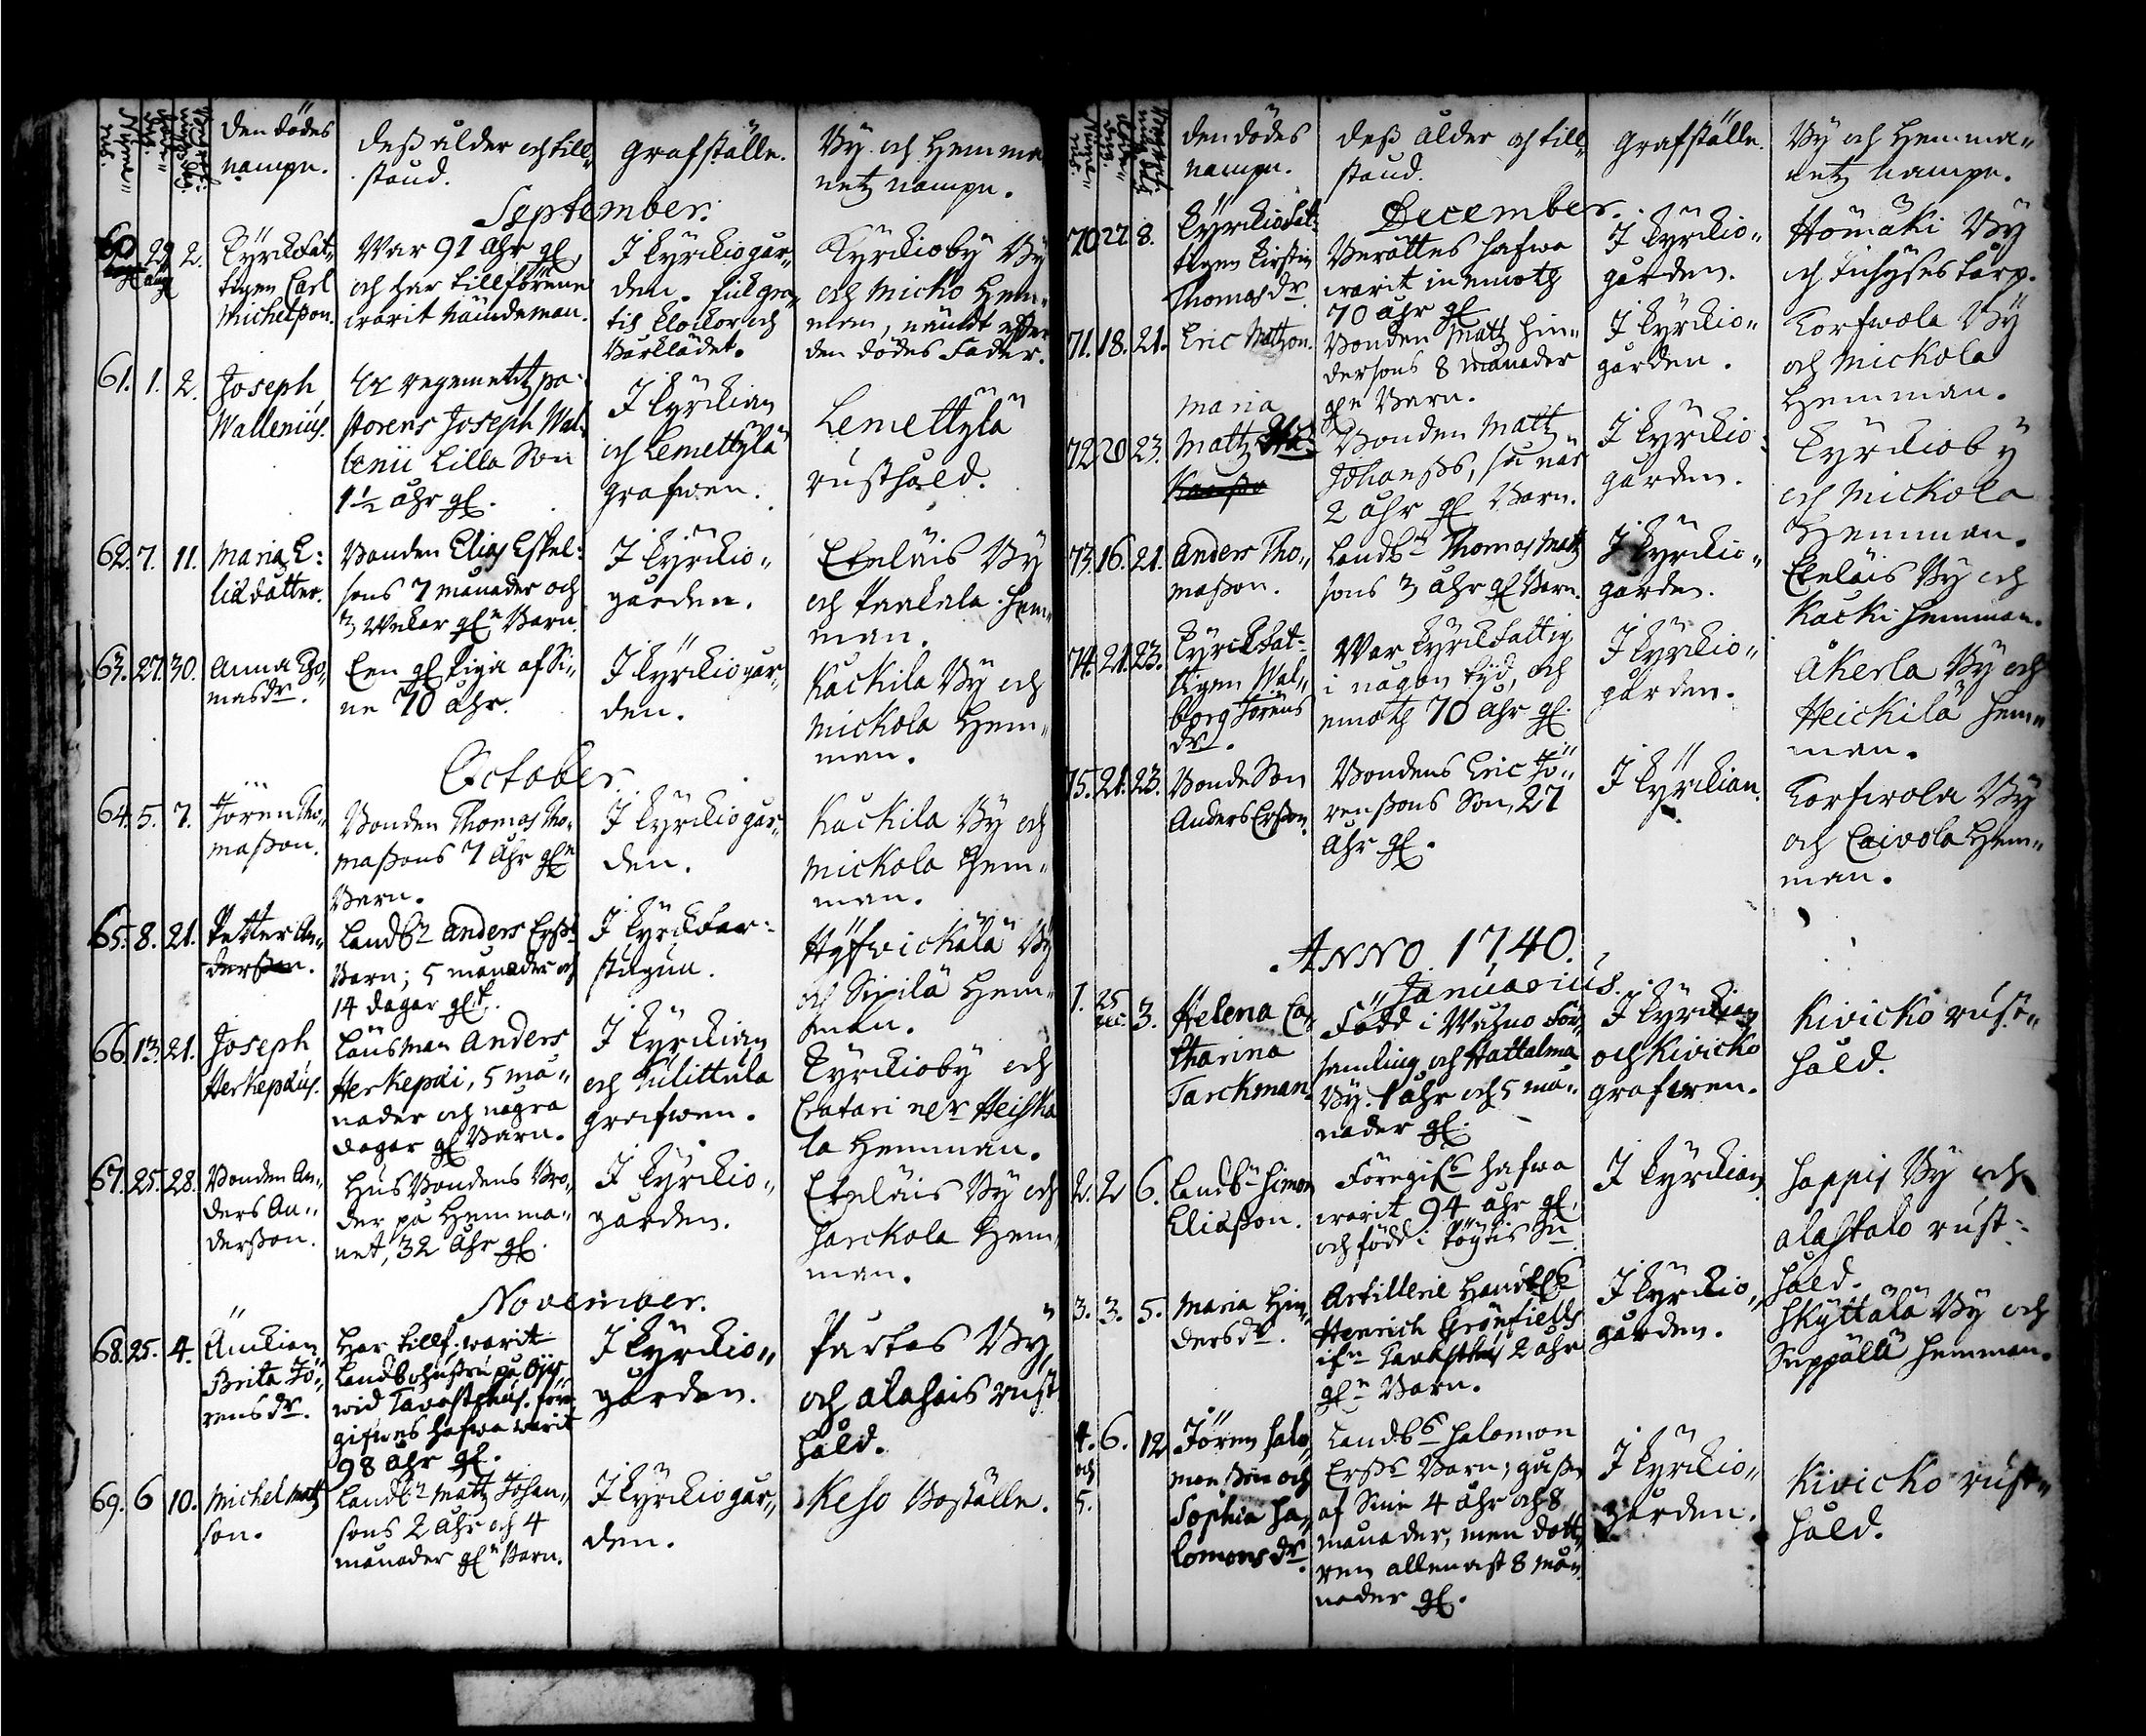 Nume„
rus.
Den dödes
nampn.
Deß ålder och till„
stånd.
Grafställe.
By och Hemma
netz nampn.
September.
60
29
aug
2.
Kyrckfat„
tigen Carl
Michelßon.
War 91 åhr gl,
och har tillförene
warit Nämdeman.
I Kyrckiogår„
den. fick gra„
tis klockor och
Bårklädet.
Kyrckioby By
och Micko Hem„
man, nämdt effter
den dödes Fader.
61. 1. 2.
Joseph
Wallenius.
Ex regementz pa„
storens Joseph Wal„
lenii lilla Son
1½ åhr gl.
I Kyrckian
och Lemettylä
grafwen.
Lemettylä
rusthåld.
62. 7. 11.
Maria E:
liædåtter.
Bonden Elias Eskel:
sons 7 månader och
3 wekor gln Barn.
I Kyrckio„
gården.
Eteläis By
och Paakala hem„
man.
63. 27. 30.
Anna Tho„
masdr.
Een gl Piga af Si„
ne 70 åhr.
I Kyrckiogår„
den.
Kackila By och
Mickola Hem„
man.
October.
64. 5. 7.
Jören Tho„
maßon.
Bonden Thomas Tho„
maßons 7 åhr gln
Barn.
I Kyrckiogår„
den.
Kackila By och
Mickola Hem„
man.
65. 8. 21.
Petter An„
derßon.
Landbn Anders Erßs
Barn; 5 månader och
14 dagar glt.
I Kyrckfar„
stugun.
Hyfwickälä By
och Sipilä Hem„
man.
66. 13. 21.
Joseph
Herkepæus.
Länsman Anders
Herkepæi, 5 må„
nader och några
dagar gl Barn.
I Kyrckian
och Tulittula
grafwen.
Kyrckioby och
Cratari ner Heiska
la Hemman.
67. 25. 28.
Bonden An„
ders An„
derßon.
Husbondens Bro„
der på Hemma„
net, 32 åhr gl.
I Kyrckio„
gården.
Eteläis By och
Jarckola Hem„
man.
November.
68. 25. 4.
Änckian
Brita Jö„
rensdr.
Har tillf. warit
Landbohustru på Öjis
wid Tavasthus. före
gifwes hafwa warit
98 åhr gl.
I Kyrckio„
gården.
Partas By,
och alahais rust
håld.
69. 6 10.
Michel Matz
son.
Landbn Matz Johan„
sons 2 åhr och 4
månader gln Barn.
I Kyrckiogår„
den.
Keso Boställe.
Nume„
rus.
Den dödes
nampn.
Deß ålder och till„
stånd.
Grafställe.
By och Hemma„
netz nampn.
December.
70 27. 8.
Kyrckiofat„
tigen Kirstin
Thomasdr
Berättes hafwa
warit inemotz
70 åhr gl
I Kyrckio„
gården.
Hömäki By
och Inhyses torp.
71. 18. 21.
Eric Matzon.
Bonden Matz Hin„
dersons 8 månader
gln Barn.
I Kyrckio„
gården.
Korfwola By
och Mickola
Hemman.
72. 20 23.
Maria
Matz
Bonden Matz
Johanßs, su når
2 åhr gl Barn.
I Kyrckio„
gården.
Kyrckioby
och Mickola
Hemman.
73. 16. 21.
Anders Tho„
maßon.
Landbn Thomas Matz
sons 3 åhr gl Barn.
I Kyrckio„
gården.
Eteläis By och
Kacki hemman.
74. 21. 23.
Kyrckfat„
tigen Wal„
borg Jörens
dr.
War Kyrckfattig
i någon tyd, och
emotz 70 åhr gl.
I Kyrckio„
gården.
Åkerla By och
Heickilä hem„
man.
75. 21. 23.
Bonde Son
Anders Erßon.
Bondens Eric Jö„
renßons Son, 27
åhr gl.
I Kyrckian.
Korfwola By
och Caivola Hem„
man.
ANNO 1740.
Januarius.
1. 25
dec. 3.
Helena Ca„
tharina
Tarckman.
Född i Wåhno För„
samling och Hattalma
By. 1 åhr och 5 må„
nader gl.
I Kyrckian
och Kivicko
grafwen.
Kivicko rust„
håld.
2. 2 6.
Landbn Simon
Eliæßon.
Föregifs hafwa
warit 94 åhr gl,
och född i Pöytis Sn
I Kyrckian
Jappis By och
alastalo rust„
håld.
3. 3. 5.
Maria Hin„
dersdr.
Artillerie
Henrich Grönfields
ifn Tavasthus 2 åhr
gln Barn.
I Kyrckio„
gården.
Skyttälä By och
Seppälä hemman.
4. 6. 12
och
5.
Jören Salo„
monßon och
Sophia Sa„
lomonsdr.
Landbs Salomon
Erßs Barn; gåßen
af Sine 4 åhr och 8
månader, men dott„
ren allenast 8 må„
nader gl.
I Kyrckio„
gården.
Kivicko rust„
håld.